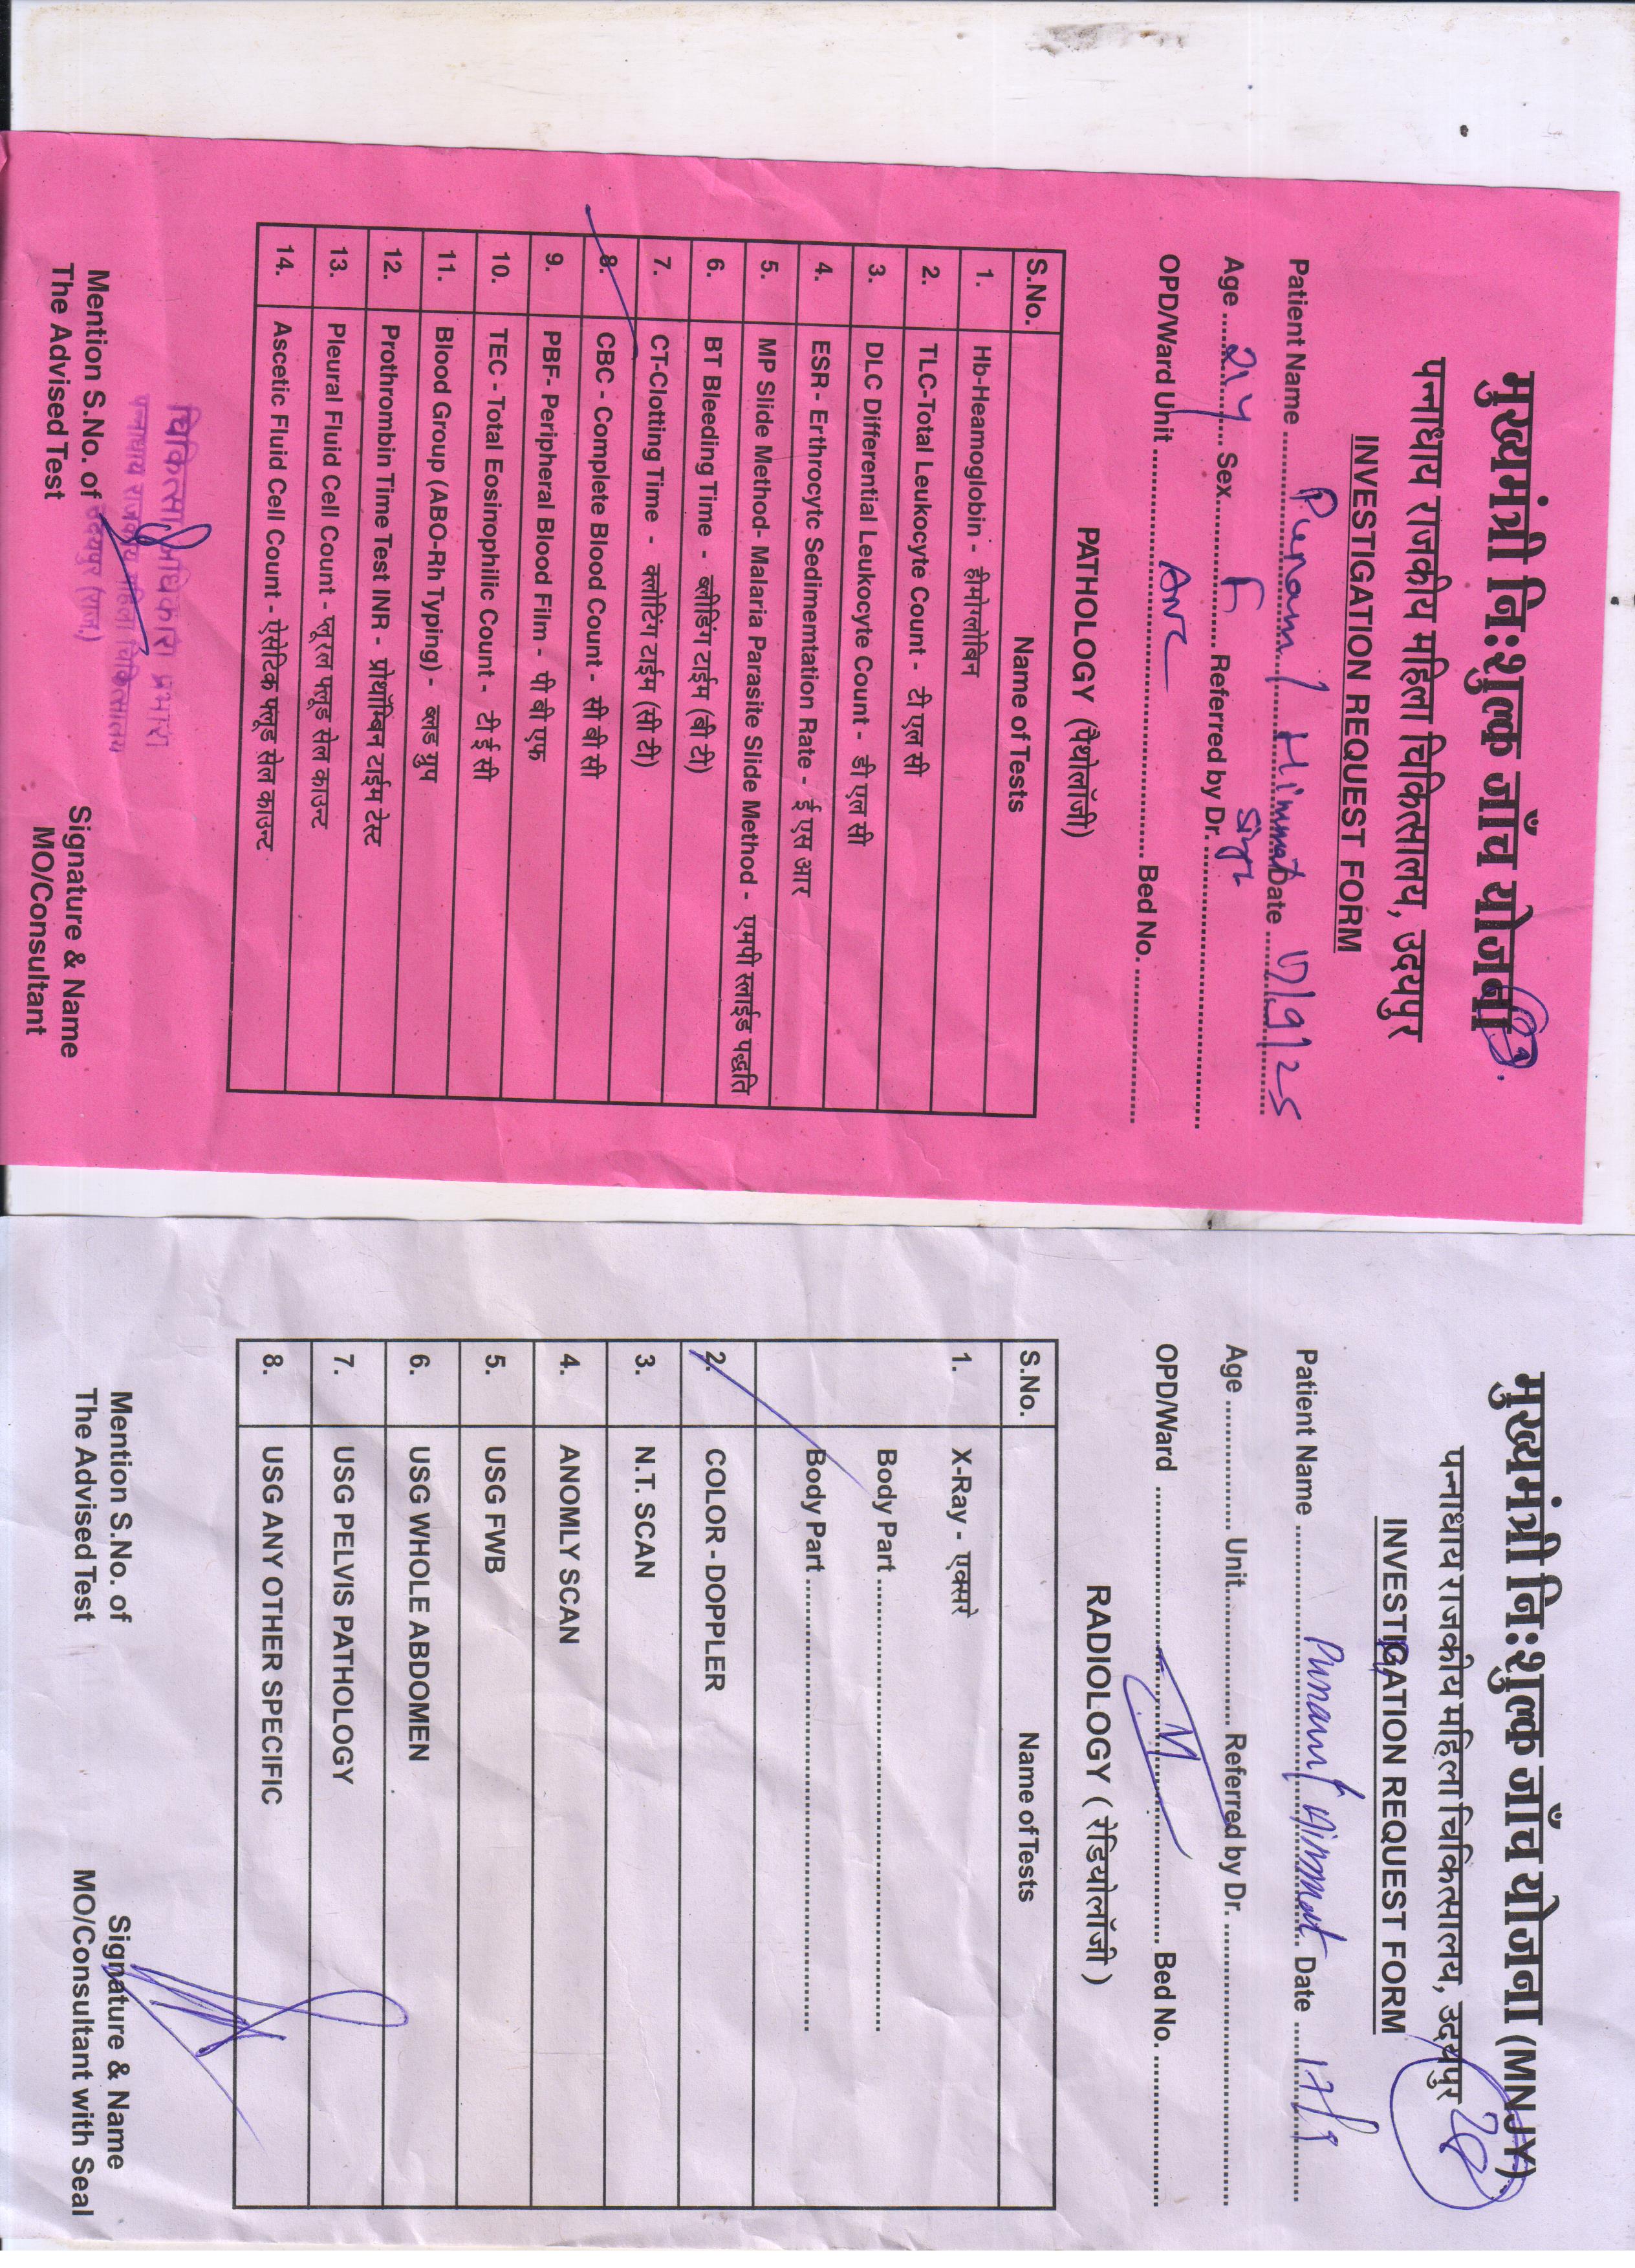 मुख्यमंत्री नि:शुल्क जाँच योजना
पन्नाधाय राजकीय महिला चिकित्सालय, उदयपुर
INVESTIGATION REQUEST FORM
Patient Name Punam / Himmat Date 17/9/25
Singh
Age 21 y Sex F Referred by Dr.
OPD/Ward Unit ANC Bed No.
PATHOLOGY (पैथोलॉजी)
S.No. Name of Tests
1. Hb-Heamoglobin - हीमोग्लोबिन
2. TLC-Total Leukocyte Count - टी एल सी
3. DLC Differential Leukocyte Count - डी एल सी
4. ESR - Erthrocytc Sedimemtation Rate - ई एस आर
5. MP Slide Method- Malaria Parasite Slide Method - एमपी स्लाईड पद्धति
6. BT Bleeding Time - ब्लीडिंग टाईम (बी टी)
7. CT-Clotting Time - क्लोटिंग टाईम (सी टी)
8. CBC - Complete Blood Count - सी बी सी
9. PBF- Peripheral Blood Film - पी बी एफ
10. TEC - Total Eosinophilic Count - टी ई सी
11. Blood Group (ABO-Rh Typing) - ब्लड ग्रुप
12. Prothrombin Time Test INR - प्रोथॉम्बिन टाईम टेस्ट
13. Pleural Fluid Cell Count - प्लूरल फ्लूड सेल काउन्ट
14. Ascetic Fluid Cell Count - ऐसेटिक फ्लूड सेल काउन्ट
चिकित्सा अधिकारी प्रभारी
पन्नाधाय राजकीय महिला चिकित्सालय
उदयपुर (राज.)
Mention S.No. of
The Advised Test
Signature & Name
MO/Consultant
मुख्यमंत्री नि:शुल्क जाँच योजना (MNJY)
पन्नाधाय राजकीय महिला चिकित्सालय, उदयपुर
28
INVESTIGATION REQUEST FORM
Patient Name Punam / Himmat Date 17/9
Age Unit Referred by Dr.
OPD/Ward Bed No.
RADIOLOGY ( रेडियोलॉजी )
S.No. Name of Tests
1. X-Ray - एक्सरे
Body Part
Body Part
2. COLOR - DOPPLER
3. N.T. SCAN
4. ANOMLY SCAN
5. USG FWB
6. USG WHOLE ABDOMEN
7. USG PELVIS PATHOLOGY
8. USG ANY OTHER SPECIFIC
Mention S.No. of
The Advised Test
Signature & Name
MO/Consultant with Seal